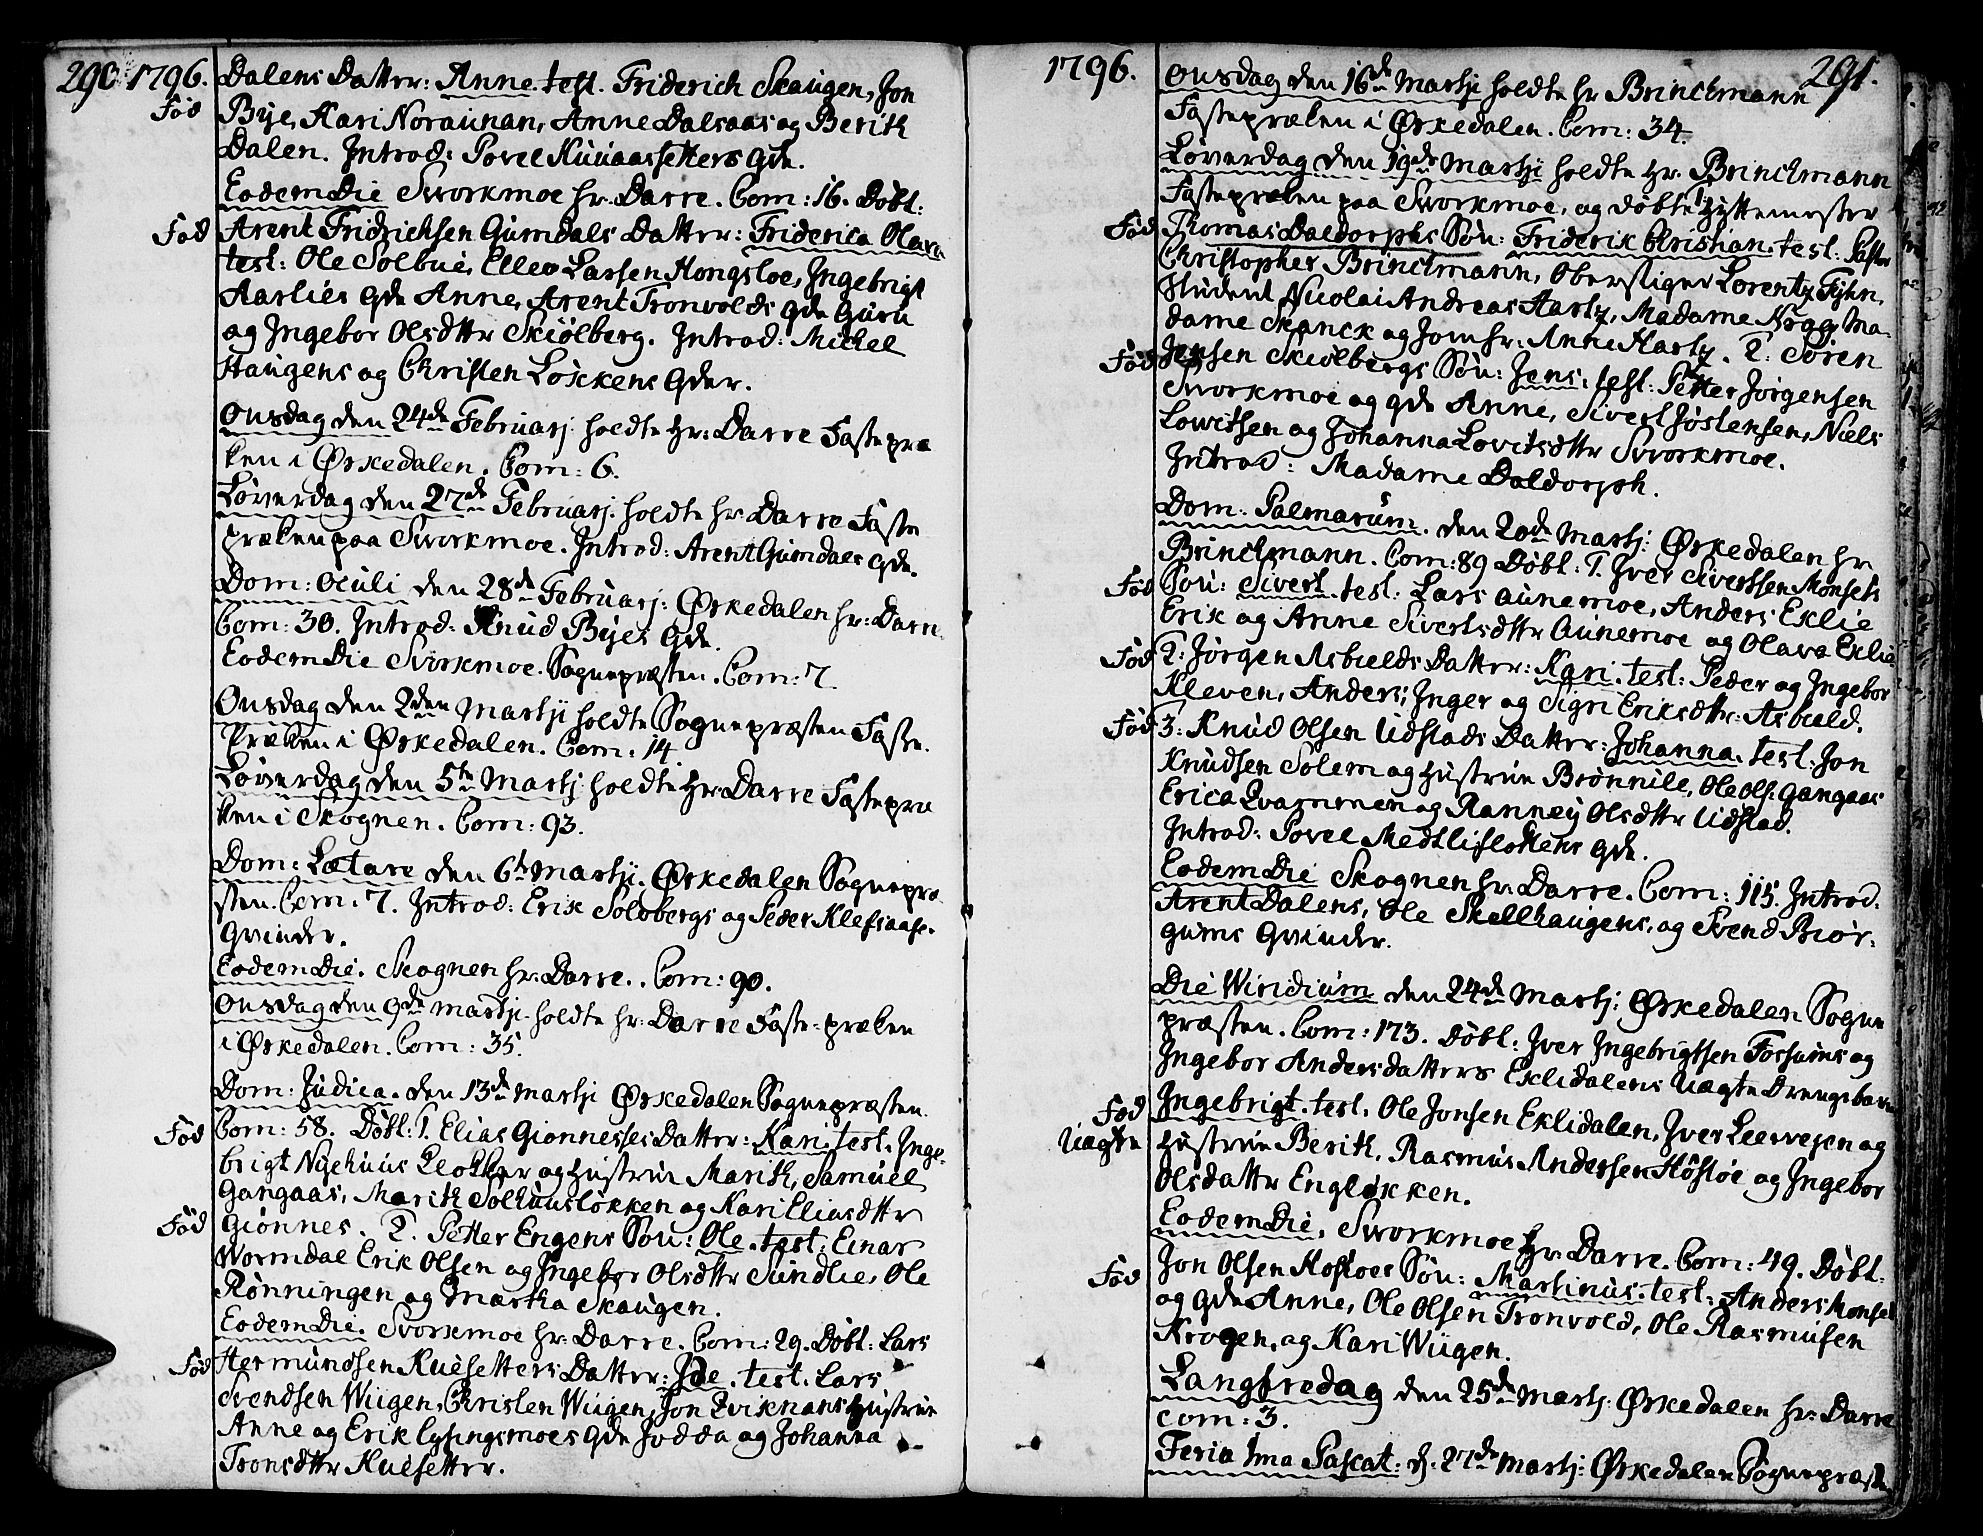 290 1796. Dalens Datter: Anne. test. Friderich Skaugen, Jon
Fød Bye, Kari Noraunan, Anne Dalsaas og Berith
Dalen. Introd: Povel Kuuaassetters Qde.
Eodem Die Svorkmoe hr. Darre. Com: 16. Døbt:
Fød Arent Fridrichsen Gumdals Datter: Friderica Olava
test: Ole Solbue, Ellev Larsen Hongsloe, Ingebrigt
Aarlies Qde Anne, Arent Tronvolds Qde Guru
og Ingebor Olsdttr Skiølberg. Introd: Michel
Haugens og Christen Løkkens Qder.
Onsdag den 24de Februarj holdte Hr: Darre Fastepræ
ken i Ørkedalen. Com: 6.
Løverdag den 27de Februarj. holdte hr. Darre Faste
præken paa Svorkmoe. Introd: Arent Gumdals Qde.
Dom: Oculi den 28de Februarj: Ørkedalen hr: Darre
Com: 30. Introd: Knud Byes Qde.
Eodem Die Svorkmoe. Sognepræsten. Com: 7.
Onsdag den 2den Martji holdte Sognepræsten Faste-
Præken i Ørkedalen. Com: 14.
Løverdag den 5te Martj holdte Hr. Darre Fastepræ
ken i Skognen. Com: 93.
Dom: Lætare den 6te Martji. Ørkedalen Sognepræ
sten. Com: 7. Introd: Erik Solbergs og Peder Klefsaas-
Qvinder.
Eodem Die. Skognen hr. Darre. Com: 90.
Onsdag den 9de Martji holdte hr: Darre Faste-præken
i Ørkedalen. Com: 35.
Dom: Judica. den 13de Martji Ørkedalen Sognepræsten.
Fød Com: 58. Døbt: 1. Elias Gionnesses Datter: Kari test. Inge-
brigt Nyehuus Leokker og Hustrue Marith, Samuel
Gangaas, Marith Solhuusløkken og Kari Eliasdttr
Fød Giønnes. 2. Petter Engens Søn: Ole. test: Einar
Wormdal Erik Olsen og Ingebor Olsdttr Sundlie, Ole
Rønningen og Martha Skaugen.
Eodem Die. Svorkmoe hr: Darre. Com: 29. Døbt: Lars
Fød Hermundsen Kuesetters Datter: Ide. test. Lars
Svendsen Wiigen, Christen Wiigen, Jon Qviknans Hustrue
Anne og Erik Lysingsmoes Qde Jodda og Johanna
Tronsdttr Kuesetter.
1796. Onsdag den 16de Martji holdte hr Brinchmann 291.
Fastepræken i Ørkedalen. Com: 34.
Løverdag den 19de Martji holdte Hr. Brinchmann
Fastepræken paa Svorkmoe, og døbte Hyttemester
Fød Thomas Daldorphs Søn: Friderik Christian. test: Pastor
Christopher Brinchmann, Oberstiger Lorentz Fyhn,
Student Nicolai Andreas Hartz, Madame Krogg, Ma-
dame Skanck og Jomfr: Anne Hartz. 2. Søren
Fød Jensen Skiølbergs Søn: Jens. test: Petter Jørgensen
Svorkmoe og Qde Anne, Sivert Jøstensen, Niels
Lowitsen og Johanna Lovitsdttr Svorkmoe.
Introd: Madame Daldorph.
Dom. Palmarum. den 20de Martj: Ørkedalen hr
Brinchmann. Com: 89 Døbt: 1. Iver Sivertsen Monsets
Fød Søn: Sivert. test: Lars Aunemoe, Anders Eklie
Erik og Anne Sivertsdttr Aunemoe og Olava Eklie
Fød 2: Jørgen Asbiælds Datter: Kari. test: Peder og Ingebor
Kleven, Anders, Inger og Sigri Eriksdttr: Asbiæld.
Fød 3: Knud Olsen Udstads Datter: Johanna. test: Jon
Knudsen Solem og Hustrue Brønnile, Ole Ols: Gangaas
Erica Qvammen og Ranney Olsdttr Udstad.
Introd: Povel Medtlisløkkens Qde.
Eodem Die Skognen hr. Darre. Com: 115. Introd.
Arent Dalens, Ole Skellhaugens, og Svend Biør-
gums Qvinder.
Die Wiridium den 24de Martj: Ørkedalen Sogne
præsten. Com: 173. Døbt: Iver Ingebrigtsen Fossums og
Ingebor Andersdatters Eklidalens Uægte Drengebarn
Fød Ingebrigt. test. Ole Jonsen Eklidalen, Iver Leervejen og
Uægte Hustrue Berith, Rasmus Andersen Hofsloe og Ingebor
Olsdattr Engløkken.
Eodem Die. Svorkmoe Hr. Darre. Com: 49. Døbt:
Fød Jon Olsen Hofloes Søn: Martinus. test: Anders Monset
og Qde Anne, Ole Olsen Tronvold, Ole Rasmusen
Krogen, og Kari Wiigen.
Langfredag den 25de Martj: Ørkedalen hr. Darre
Com: 3.
Feria 1ma Pascat: d. 27de Martj: Ørkedalen Sognepræst